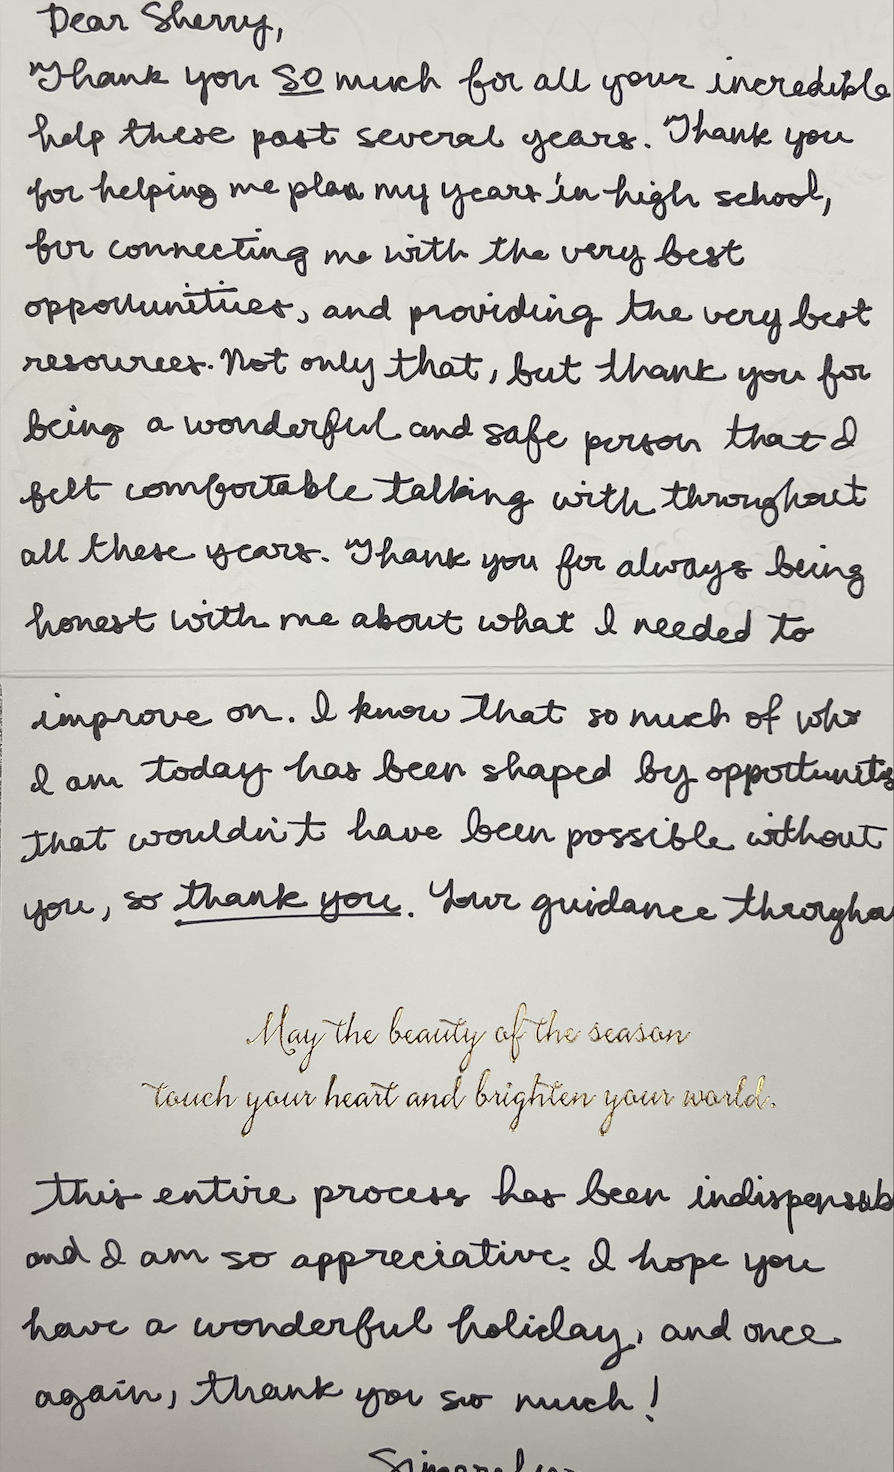 Dear Sherry,
Thank you SO much for all your incredible
help these past several years. Thank you
for helping me plan my years in high school,
for connecting me with the very best
opportunities, and providing the very best
resources. Not only that, but thank you for
being a wonderful and safe person that I
felt comfortable talking with throughout
all these years. Thank you for always being
honest with me about what I needed to
improve on. I know that so much of who
I am today has been shaped by
that wouldn't have been possible without
you, so thank you. Your guidance
May the beauty of the season
touch your heart and brighten your world.
this entire process has been
and I am so appreciative. I hope you
have a wonderful holiday, and once
again, thank you so much!